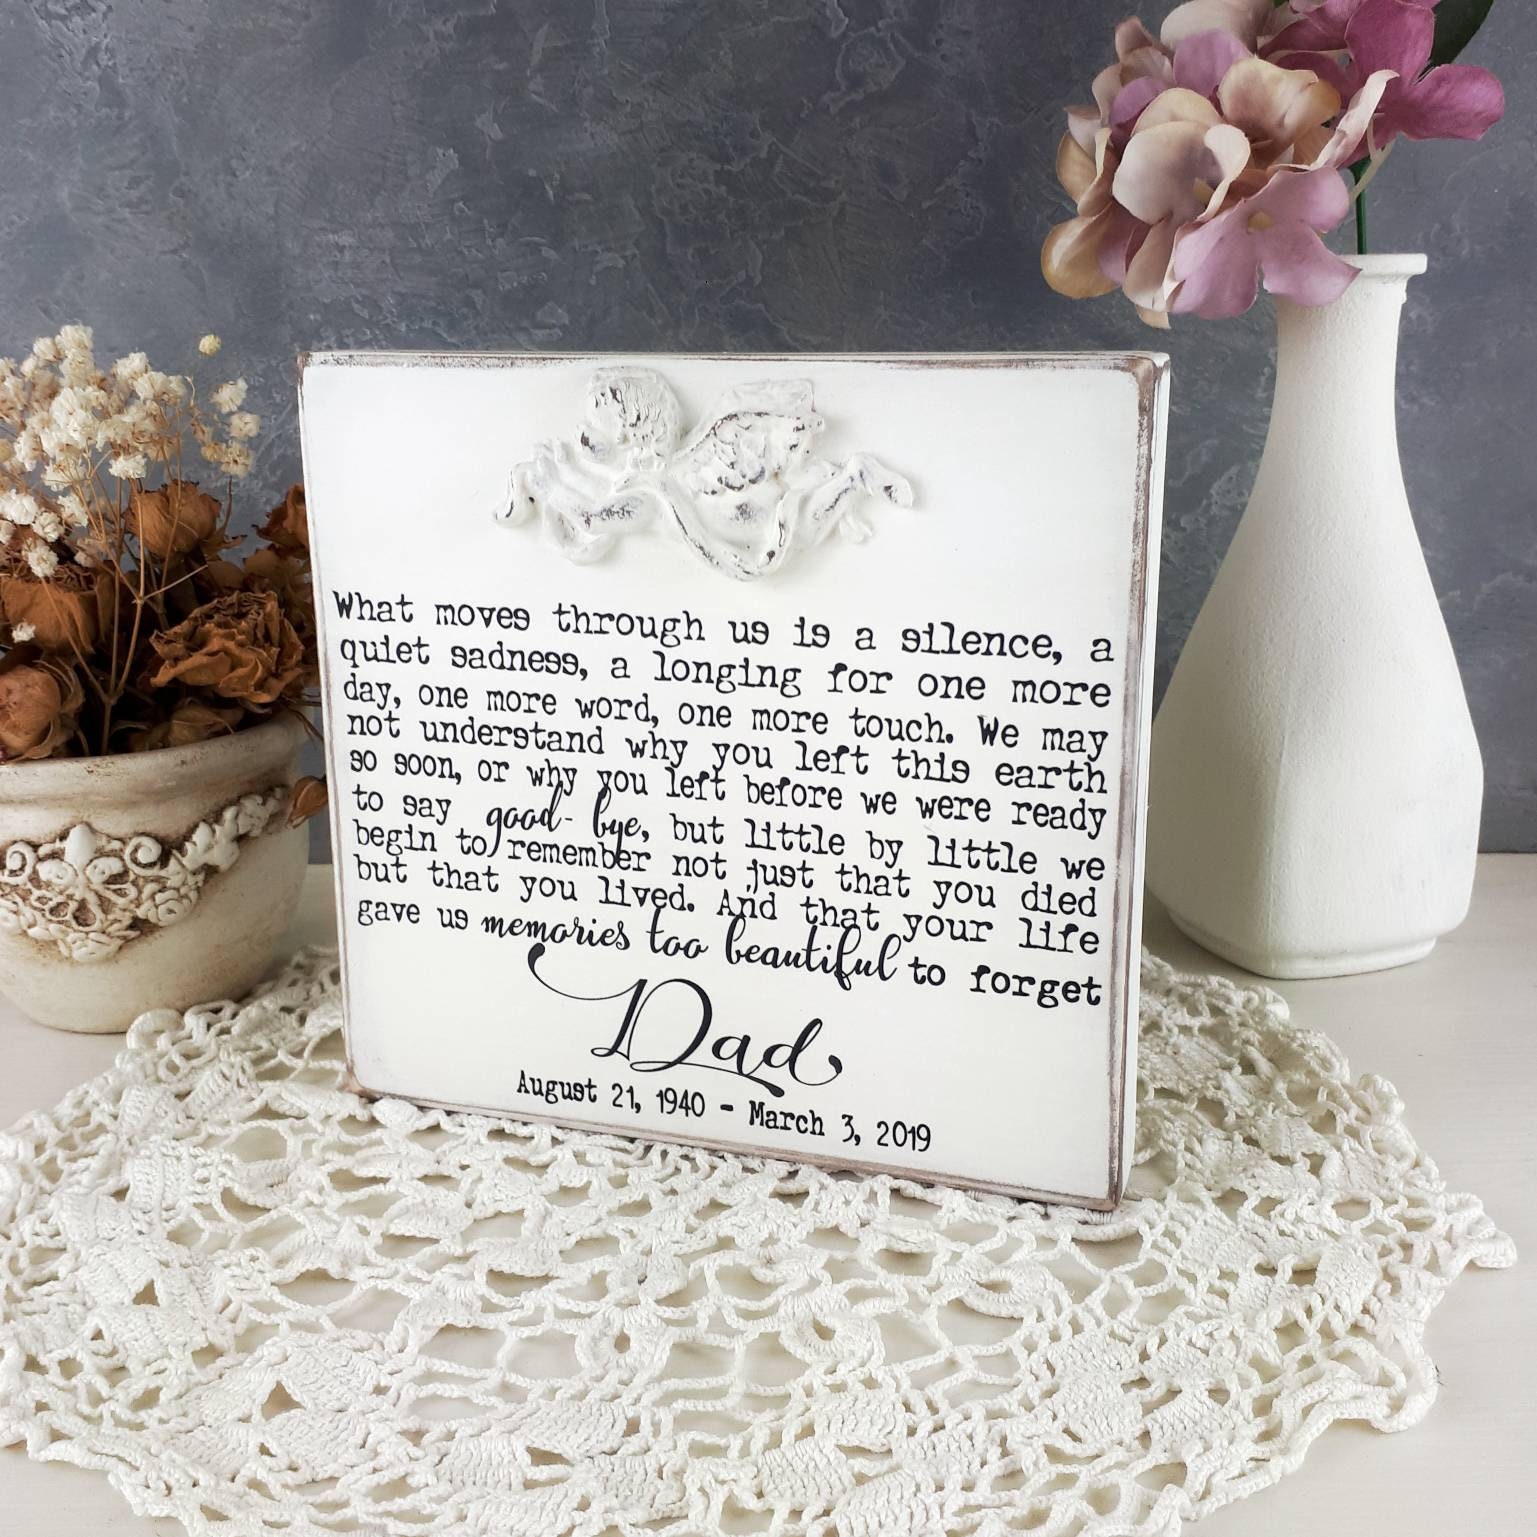 What moves through us is a silence, a
quiet sadness, a longing for one more
day, one more word, one more touch. We may
not understand why you left this earth
so soon, or why you left before we were ready
to say good-bye, but little by little we
begin to remember not just that you died
but that you lived. And that your life
gave us memories too beautiful to forget
Dad
August 21, 1940 - March 3, 2019